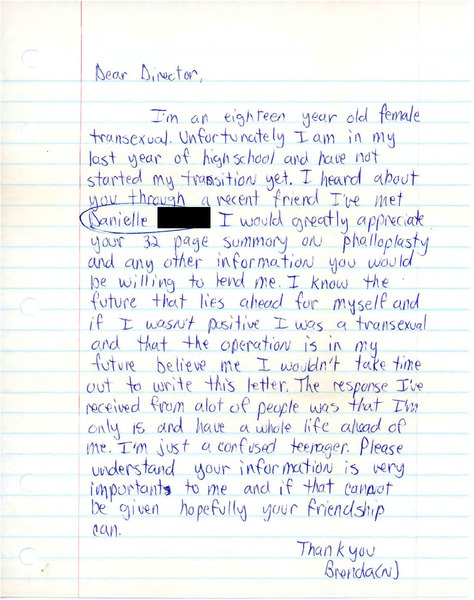 Dear Director,
I'm an eighteen year old female
transexual. Unfortunately I am in my
last year of highschool and have not
started my transition yet. I heard about
you through a recent friend I've met
Danielle
I would greatly appreciate
your 32 page summary on phalloplasty
and any other information you would
be willing to lend me. I know the
future that lies ahead for myself and
if I wasn't positive I was a transexual
and that the operation is in my
future believe me I wouldn't take time
out to write this letter. The response I've
received from alot of people was that I'm
only 18 and have a whole life ahead of
me. I'm just a confused teenager. Please
understand your information is very
important to me and if that cannot
be given hopefully your friendship
can.
Thank you
Brenda(N)